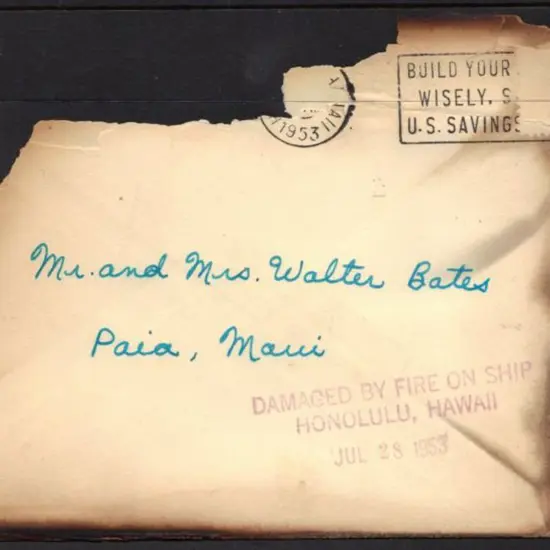 BUILD YOUR
WISELY, S
U.S. SAVINGS
WAII
1953
Mr. and Mrs. Walter Bates
Paia, Maui
DAMAGED BY FIRE ON SHIP
HONOLULU, HAWAII
JUL 28 1953